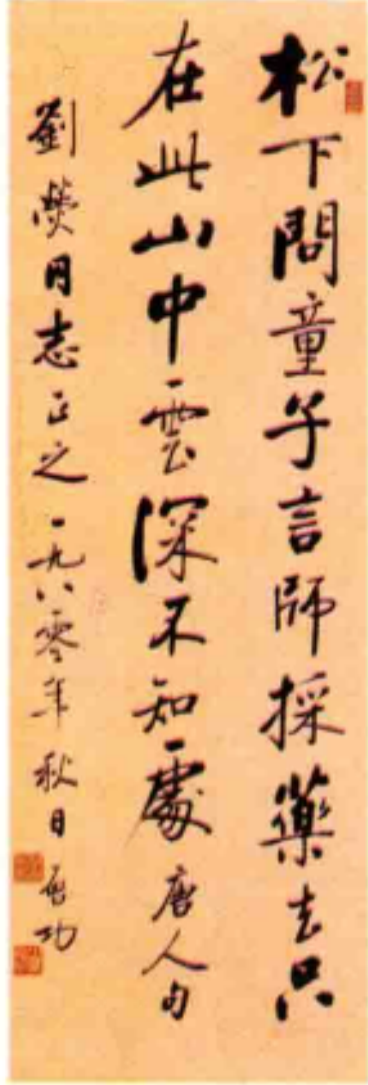 松下問童子言師採藥去只
在此山中雲深不知處唐人句
劉熒同志正之一九八零年秋日啟功